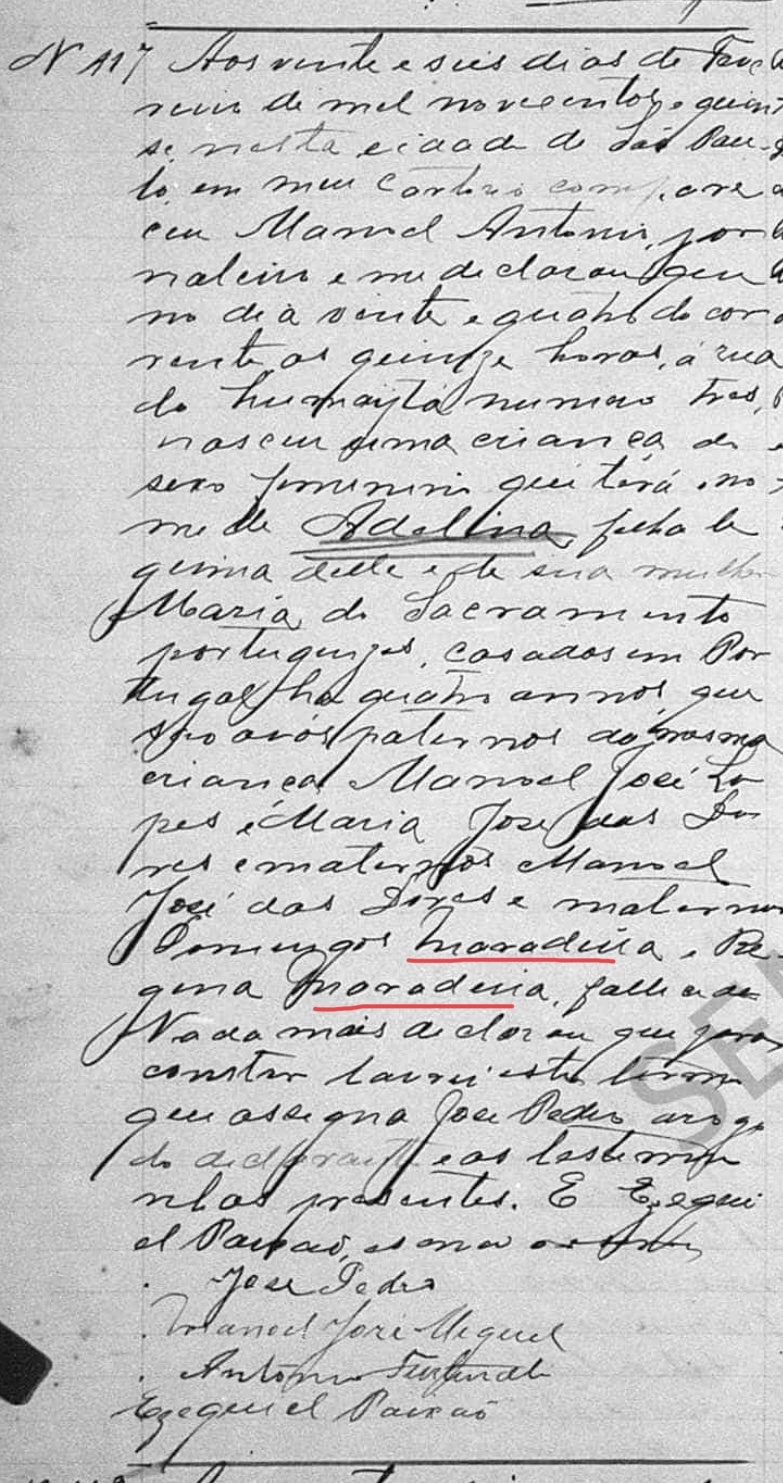 N 117 Aos vinte e seis dias de Feve
reiro de mil novecentos e quin
se, nesta cidade de São Pau-
lo, em meu Cartorio compare
ceu Manoel Antonio, jor
naleiro e me declarou que
no dia vinte e quatro do cor
rente, as quinze horas, á rua
do humaytá numero tres,
nasceu uma criança do
sexo feminino que terá o no
me de Adelina, filha le
gitima delle e de sua mulher
Maria do Sacramento
portuguezes, casados em Por
tugal ha quatro annos, que
são avós paternos da mesma
criança Manoel José Lo
pes e Maria José das Do
res e maternos Manoel
José das Dores e maternos
Domingos e Re
gina fallecida
Nada mais declarou que para
constar lavrei este termo
que assigna José Pedro a rogo
do declarante e as testemu
nhas presentes. E Ezequi
el Paixão, escrevi
José Pedro
Manoel José Miguel
Antonio
Ezequiel Paixão
SE